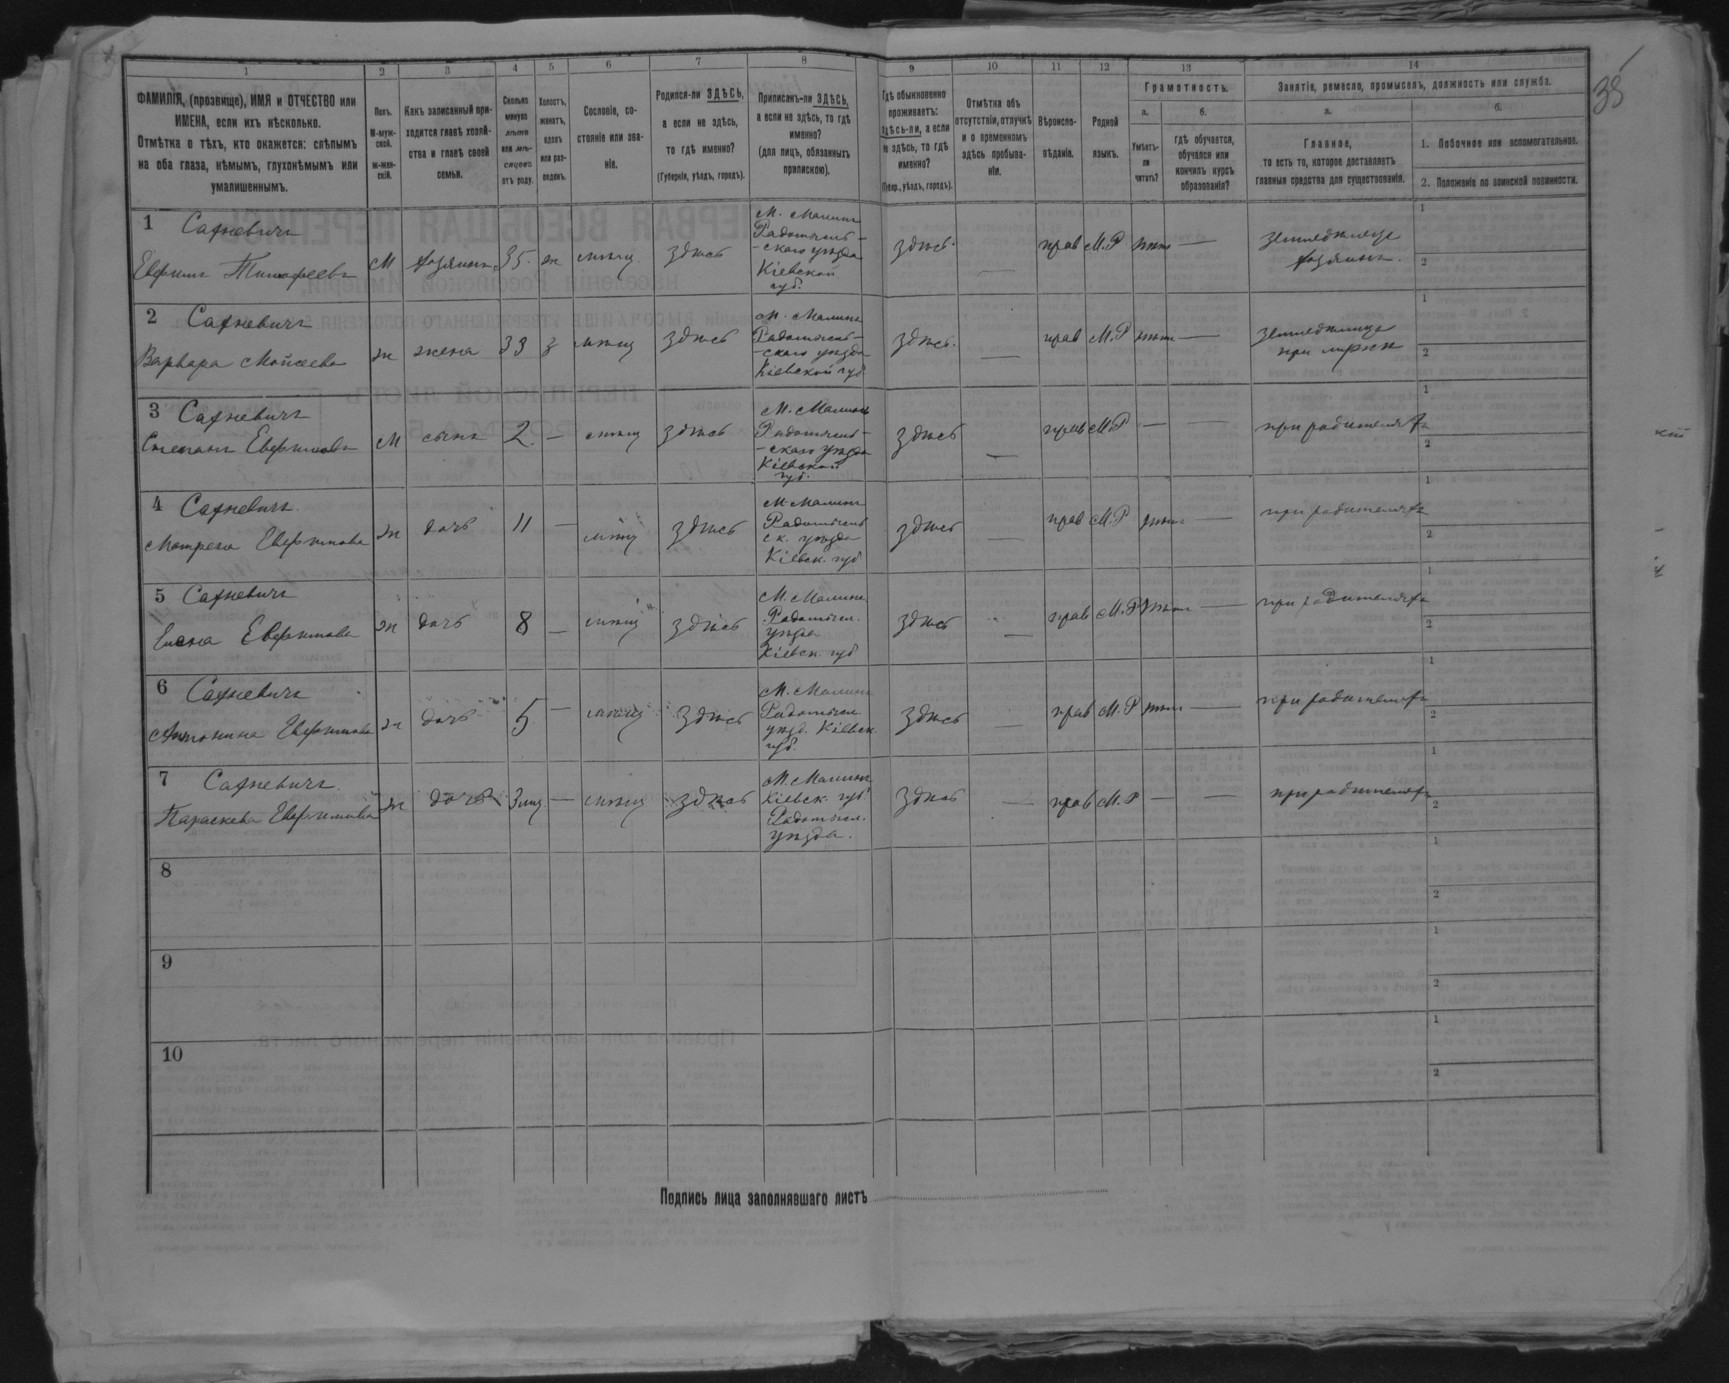 38
1 2 3 4 5 6 7 8 9 10 11 12 13 14
ФАМИЛІЯ, (прозвище), ИМЯ и ОТЧЕСТВО или
ИМЕНА, если ихъ нѣсколько.
Отмѣтка о тѣхъ, кто окажется: слѣпымъ
на оба глаза, нѣмымъ, глухонѣмымъ или
умалишеннымъ.
Полъ.
М-муж-
ской.
Ж-жен-
скій.
Какъ записанный при-
ходится главѣ хозяй-
ства и главѣ своей
семьи.
Сколько
минуло
лѣтъ
или мѣ-
сяцевъ
отъ роду.
Холостъ,
женатъ,
вдовъ
или раз-
веденъ.
Сословіе, со-
стояніе или зва-
ніе.
Родился-ли ЗДѢСЬ,
а если не здѣсь,
то гдѣ именно?
(Губернія, уѣздъ, городъ).
Приписанъ-ли ЗДѢСЬ,
а если не здѣсь, то гдѣ
именно?
(для лицъ, обязанныхъ
припискою).
Гдѣ обыкновенно
проживаетъ:
здѣсь-ли, а если
не здѣсь, то гдѣ
именно?
(Губер., уѣздъ, городъ).
Отмѣтка объ
отсутствіи, отлучкѣ
и о временномъ
здѣсь пребыва-
ніи.
Вѣроиспо-
вѣданіе.
Родной
языкъ.
Грамотность.
а.
Умѣетъ-
ли
читать?
б.
гдѣ обучается,
обучался или
кончилъ курсъ
образованія?
Занятія, ремесло, промыселъ, должность или служба.
а.
Главное,
то есть то, которое доставляетъ
главныя средства для существованія.
б.
1. Побочное или вспомогательное.
2. Положеніе по воинской повинности.
1 Сахневичъ
Тимофеевъ
М хозяинъ 35 ж мѣщ здѣсь
М. Малинъ
Радомысль-
-скаго уѣзда
Кіевской
губ.
здѣсь — прав М.Р —
хозяинъ
1
2
2 Сахневичъ
Варвара Мойсеева
ж жена 33 з мѣщ здѣсь
М. Малинъ
Радомысль-
-скаго уѣзда
Кіевской губ
здѣсь — прав М.Р —
при мужѣ
1
2
3 Сахневичъ
Степанъ
М сынъ 2 — мѣщ здѣсь
М. Малинъ
Радомысль-
-скаго уѣзда
Кіевской
губ.
здѣсь — прав М.Р — — при родителяхъ
1
2
4 Сахневичъ
Матрена
ж дочь 11 — мѣщ здѣсь
М. Малинъ
Радомысль
ск. уѣзда
Кіевск. губ
здѣсь — прав М.Р — при родителяхъ
1
2
5 Сахневичъ
Елена
ж дочь 8 — мѣщ здѣсь
М. Малинъ
Радомысл.
уѣзда
Кіевск. губ
здѣсь — прав М.Р — при родителяхъ
1
2
6 Сахневичъ
Антонина
ж дочь 5 — мѣщ здѣсь
М. Малинъ
Радомысл.
уѣзд. Кіевск.
губ.
здѣсь — прав М.Р — при родителяхъ
1
2
7 Сахневичъ
Параскева
ж дочь 3 мц — мѣщ здѣсь
М. Малинъ
Кіевск. губ
Радомысл.
уѣзда.
здѣсь — прав М.Р — — при родителяхъ
1
2
8
1
2
9
1
2
10
1
2
Подпись лица заполнявшаго листъ